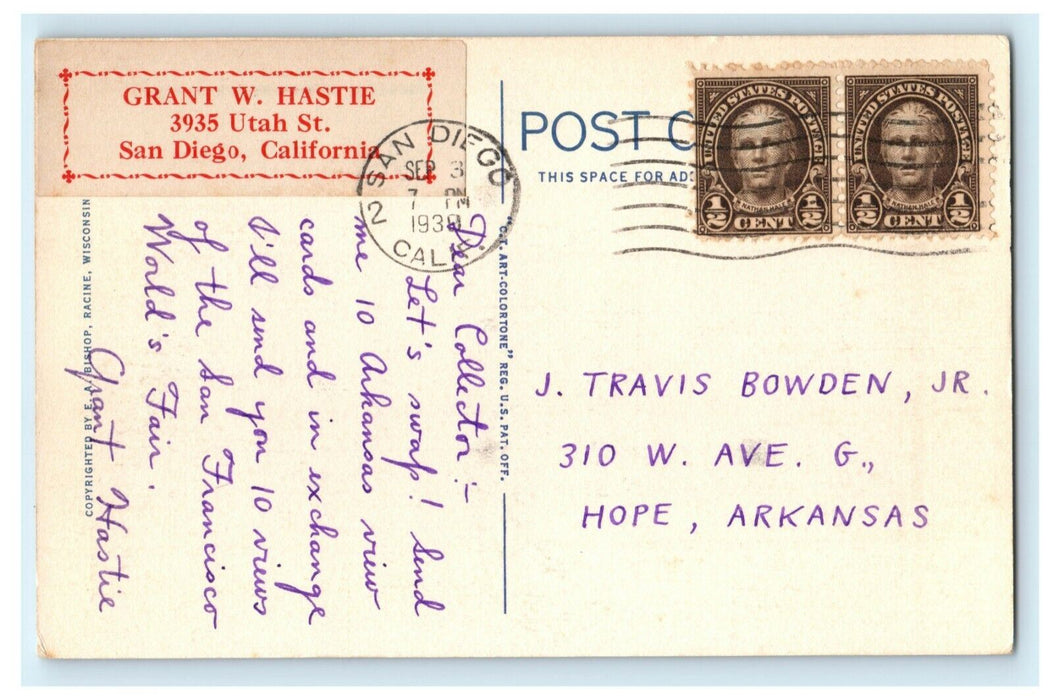 GRANT W. HASTIE
3935 Utah St.
San Diego, California
SAN DIEGO
SEP 3
7 PM
1939
2 CALIF
POST C
THIS SPACE FOR AD
UNITED STATES POSTAGE
NATHAN HALE
1/2 CENT 1/2
UNITED STATES POSTAGE
NATHAN HALE
1/2 CENT 1/2
Dear Collector:-
Let's swap! Send
me 10 Arkansas view
cards and in exchange
I'll send you 10 views
of the San Francisco
World's Fair.
Grant Hastie
COPYRIGHTED BY E. A. BISHOP, RACINE, WISCONSIN
"C.T. ART-COLORTONE" REG. U.S. PAT. OFF.
J. TRAVIS BOWDEN, JR.
310 W. AVE. G.,
HOPE, ARKANSAS